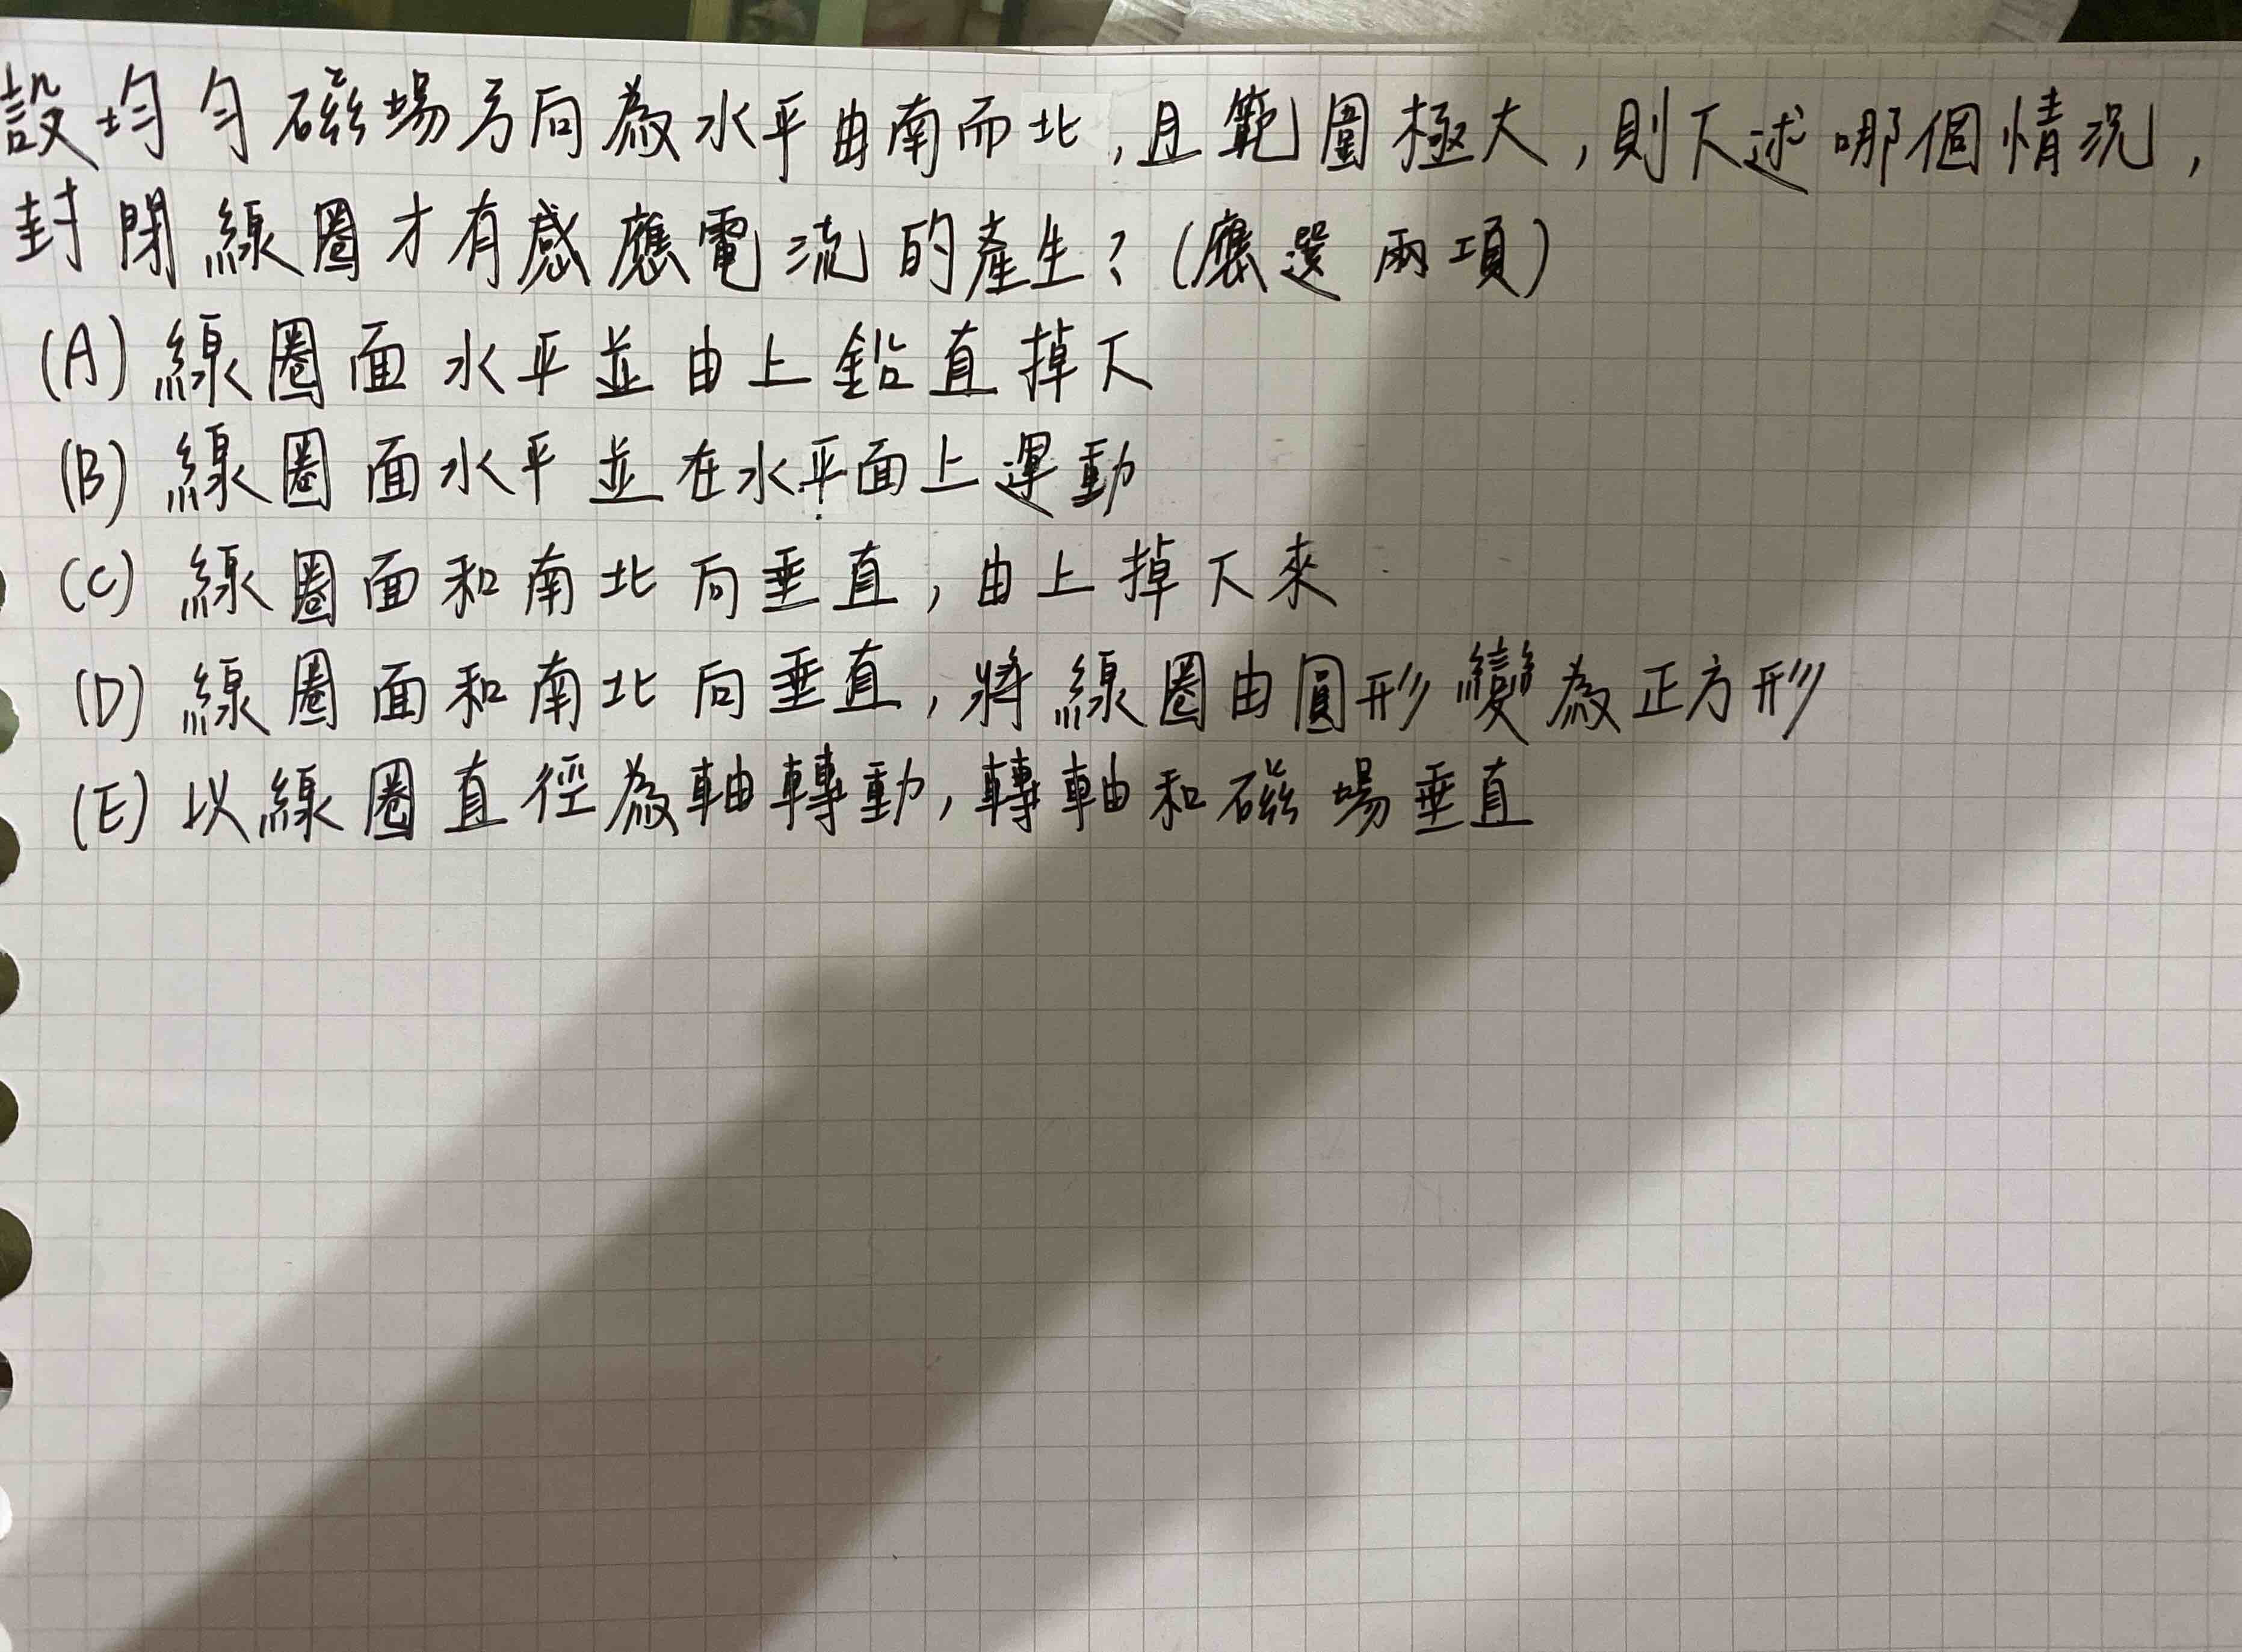 設均勻磁場方向為水平由南而北,且範圍極大,則下述哪個情況,
封閉線圈才有感應電流的產生?(應選兩項)
(A) 線圈面水平並由上鉛直掉下
(B) 線圈面水平並在水平面上運動
(C) 線圈面和南北向垂直,由上掉下來
(D) 線圈面和南北向垂直,將線圈由圓形變為正方形
(E) 以線圈直徑為軸轉動,轉軸和磁場垂直